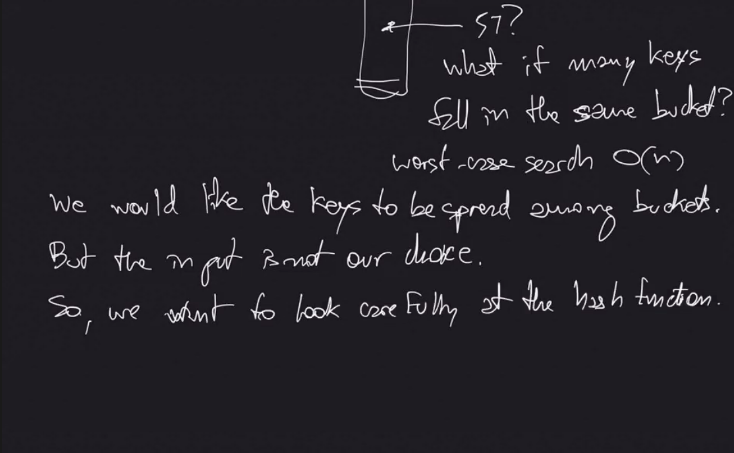 57?
what if many keys
fall in the same bucket?
worst-case search O(n)
We would like the keys to be spread among buckets.
But the input is not our choice.
So, we want to look carefully at the hash function.